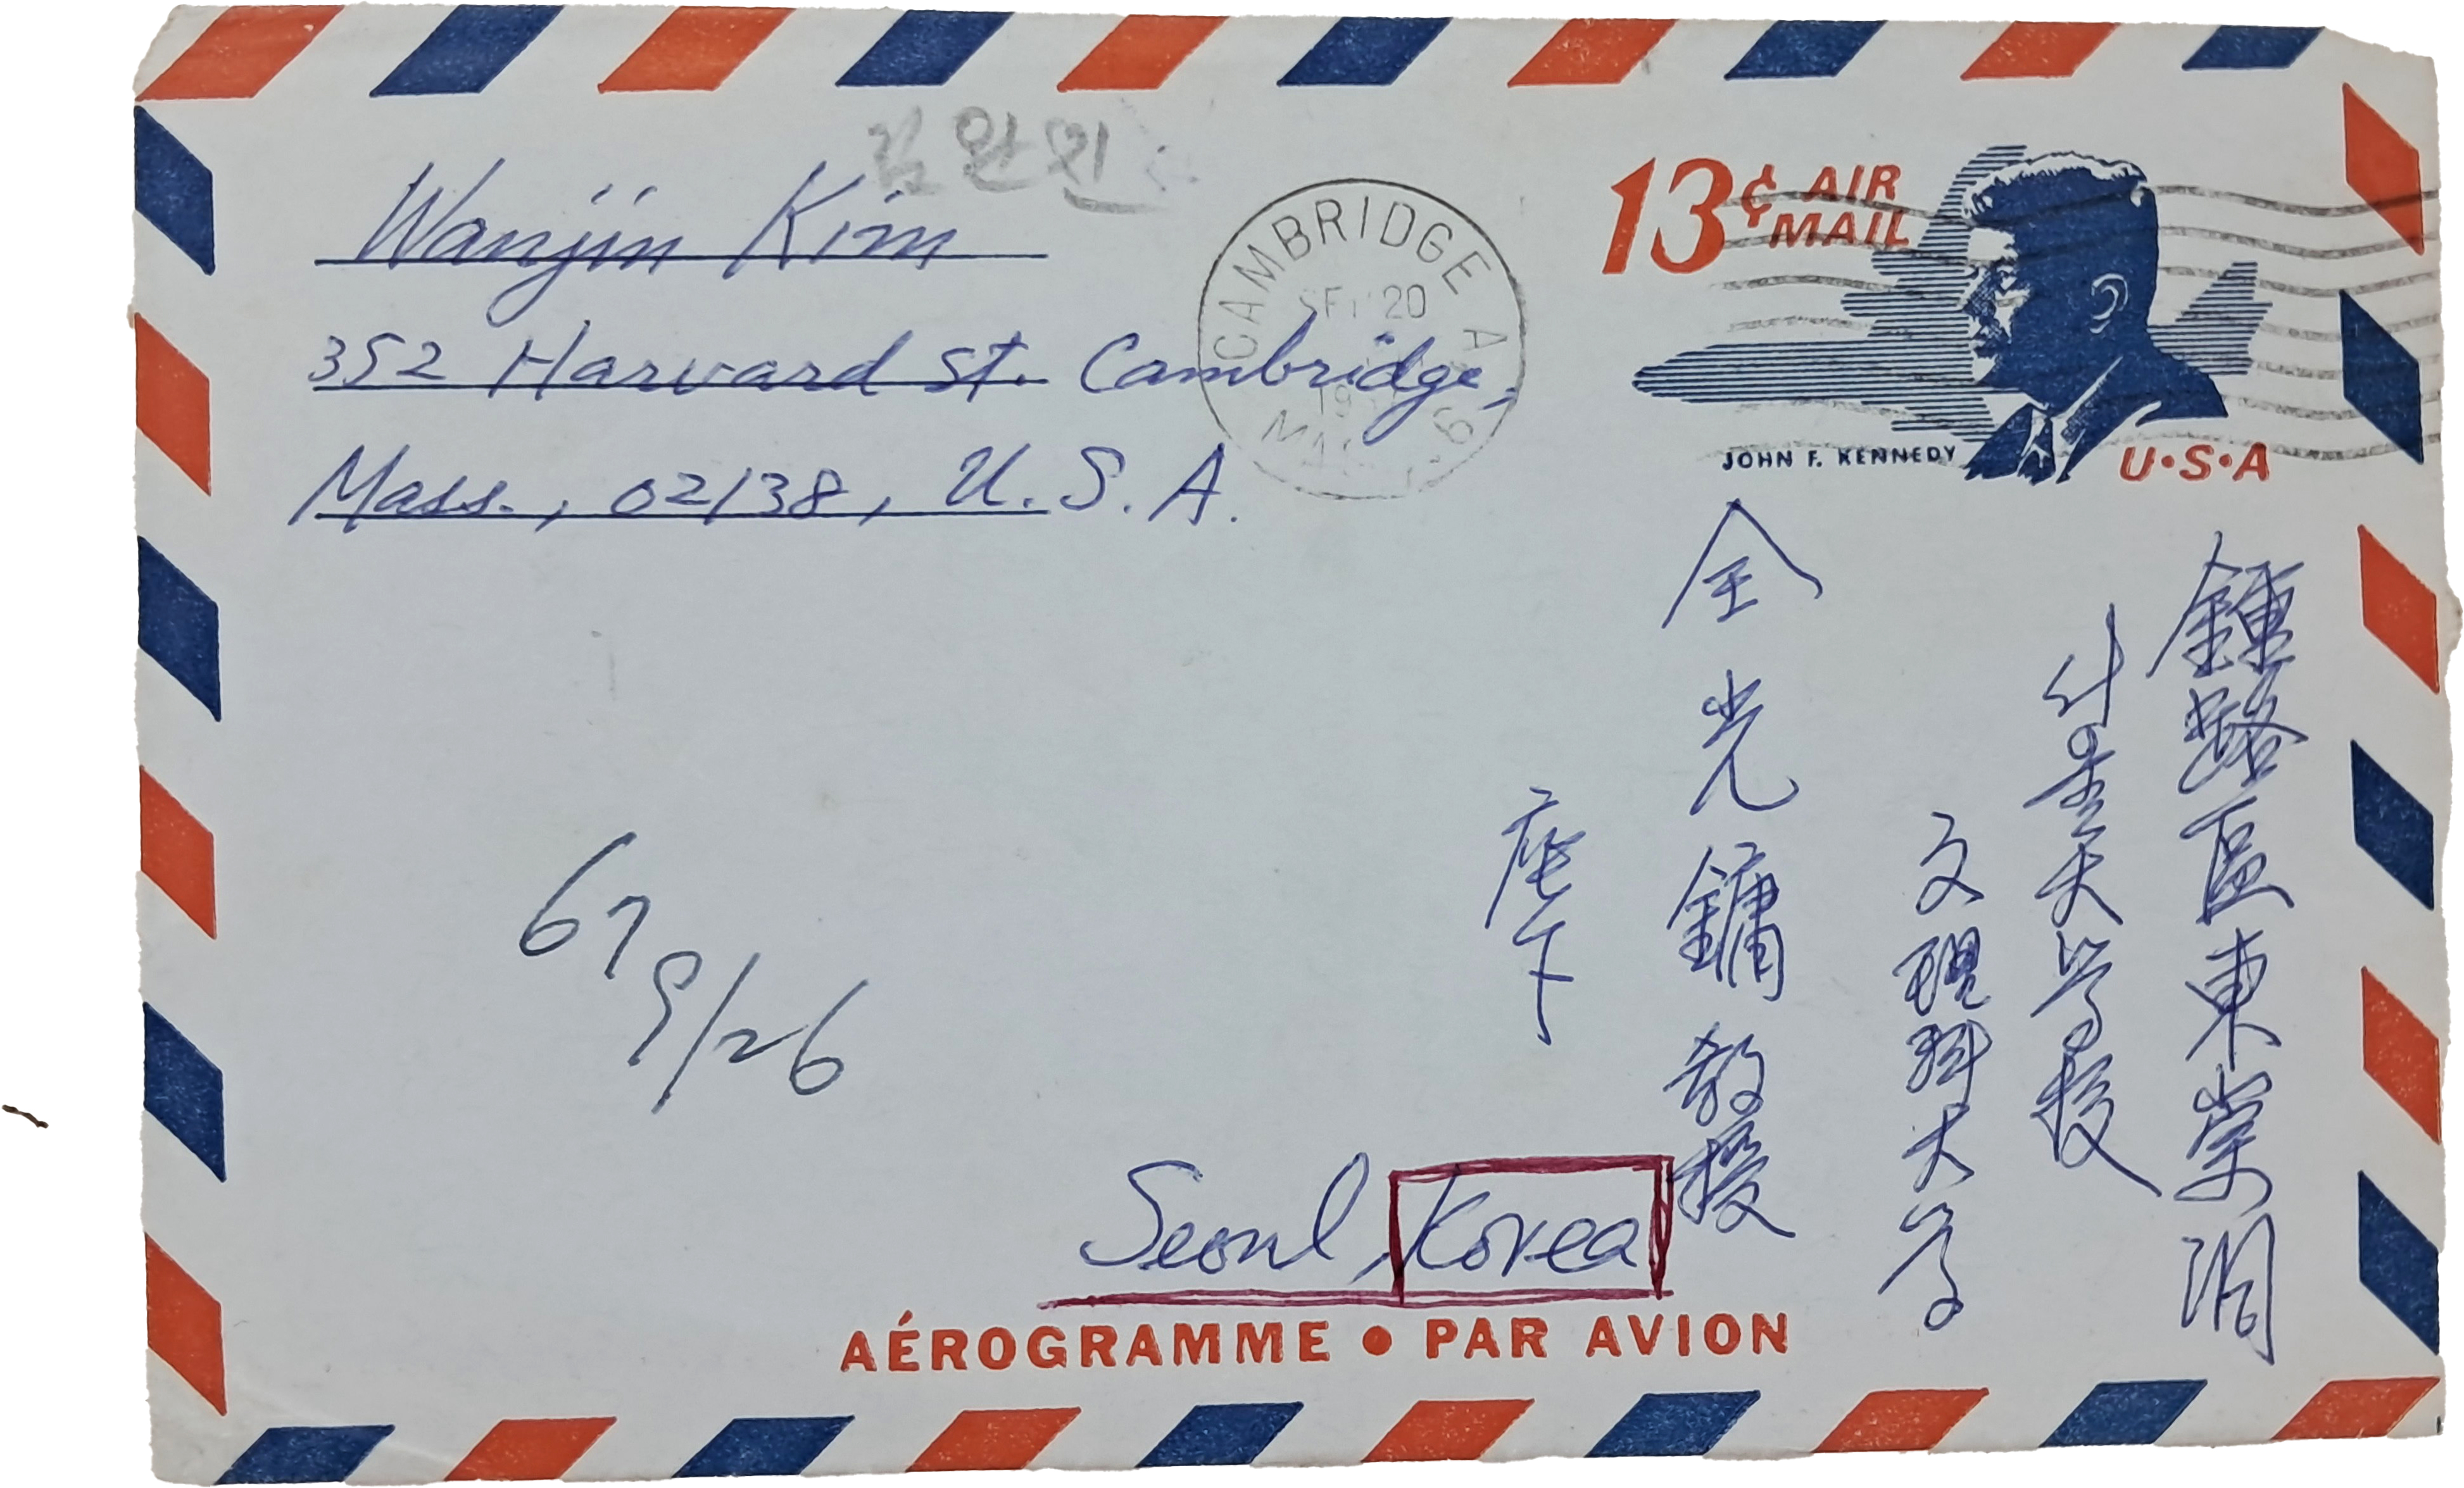 김완진
Wanjin Kim
352 Harvard St. Cambridge,
Mass., 02138, U.S.A.
CAMBRIDGE A
SEP 20
13¢ AIR MAIL
JOHN F. KENNEDY
U·S·A
鍾路區東崇洞
서울大学校
文理科大学
全光鏞 教授
座下
67
9/26
Seoul, Korea
AÉROGRAMME • PAR AVION